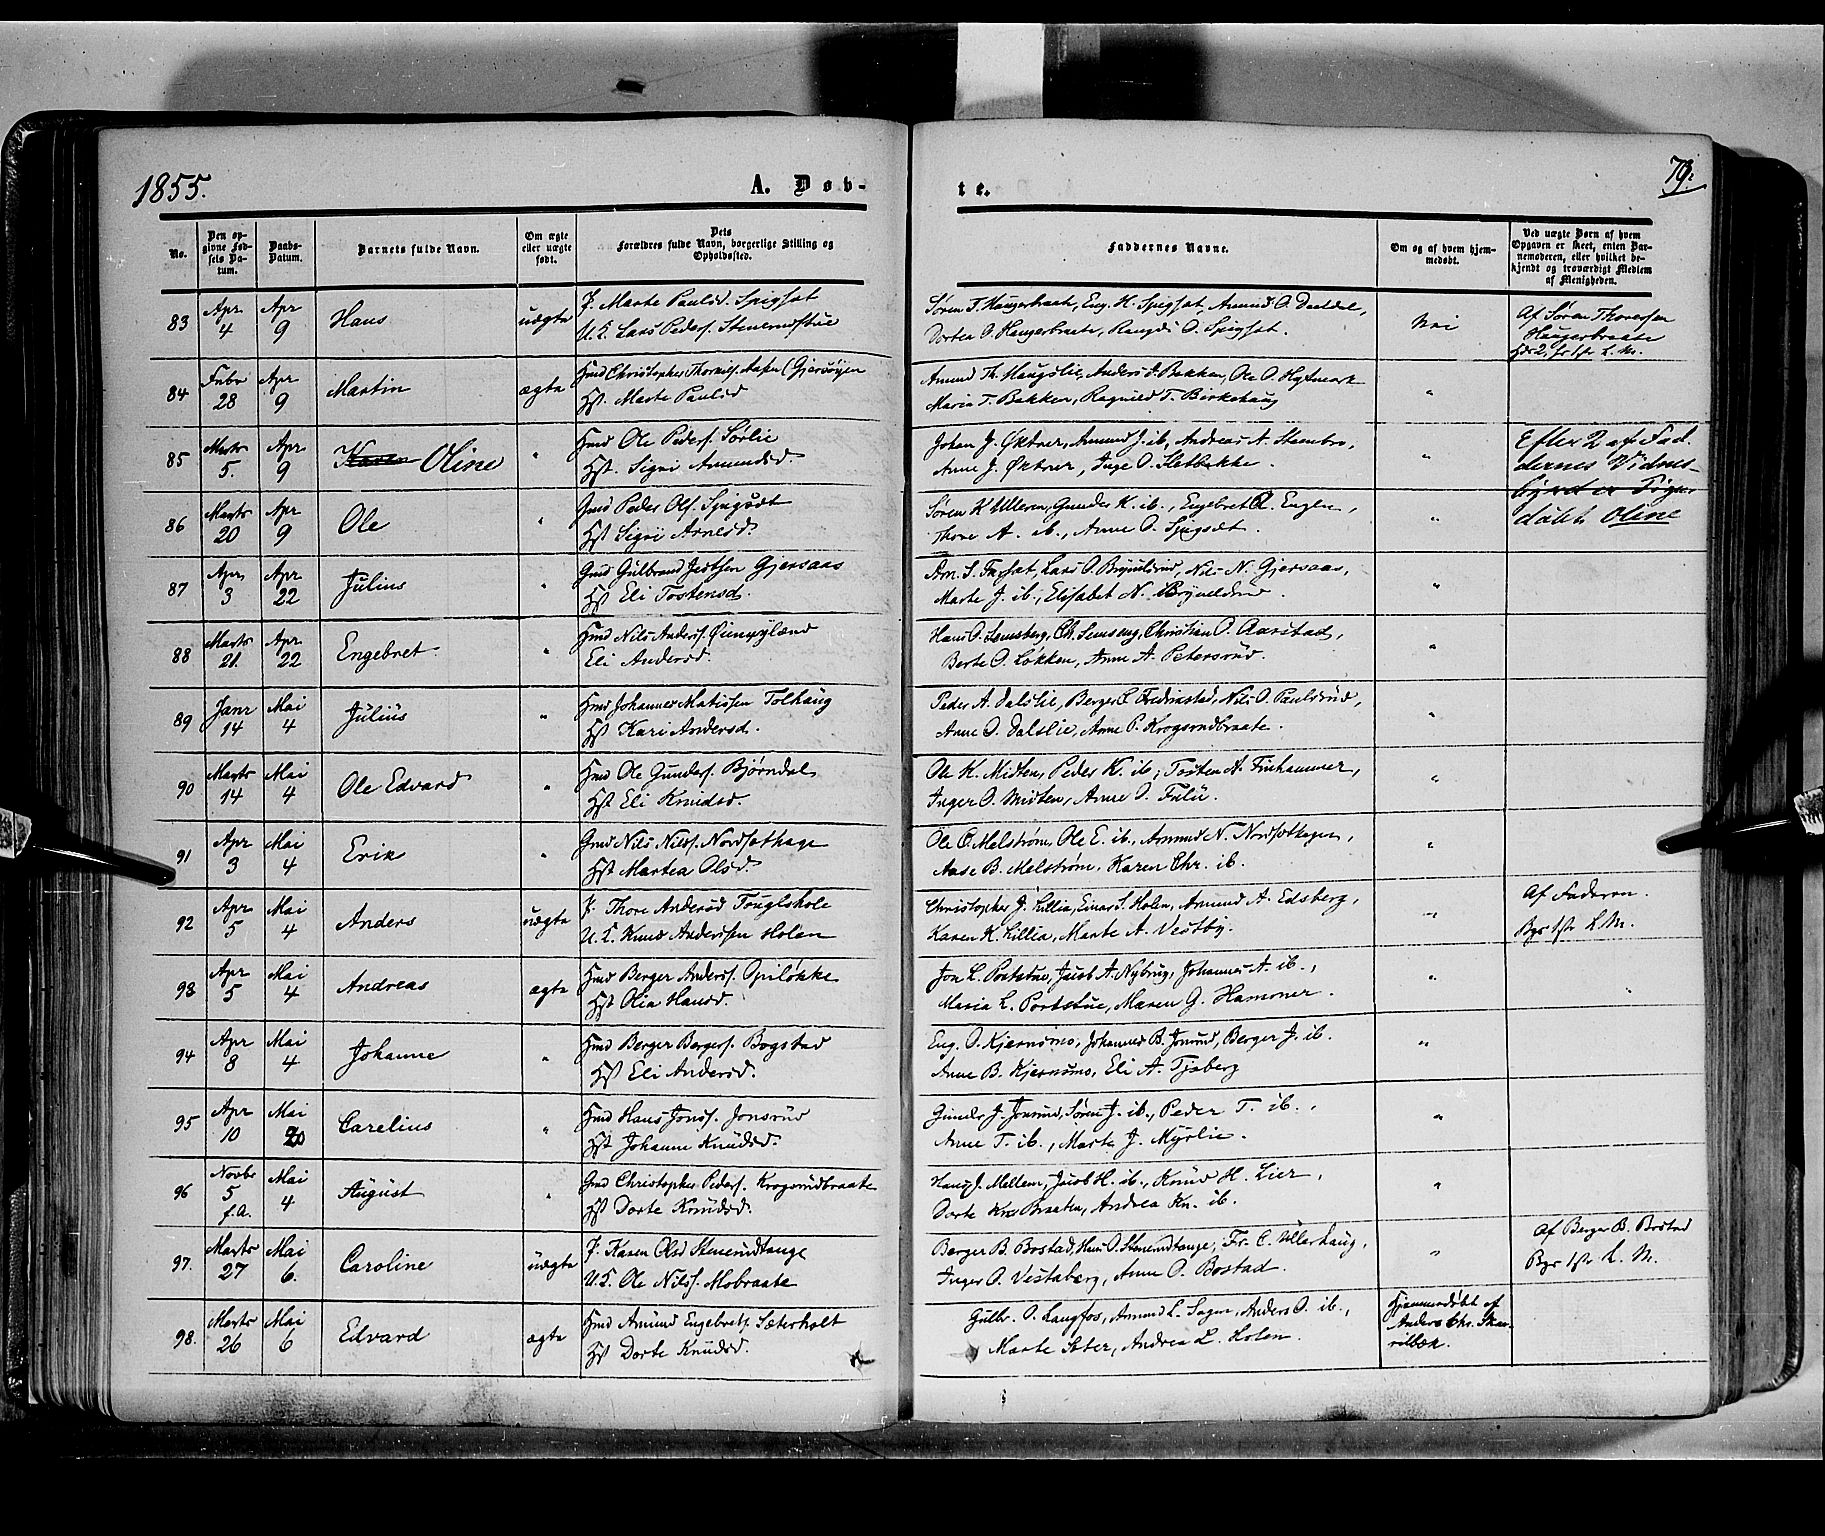 1855.
A. Døb-
te.
79.
No.
Den opgivne Fødsels Datum.
Daabs-Datum.
Barnets fulde Navn.
Om ægte eller uægte født.
Dets Forældres fulde Navn, borgerlige Stilling og Opholdssted.
Faddernes Navne.
Om og af hvem hjemmedøbt.
Ved uægte Børn af hvem Opgaven er skeet, enten Barnemoderen, eller hvilket bekjendt og troværdigt Medlem af Menigheden.
83 Apr 4 Apr 9 Hans uægte
P. Marte Paulsd. Spigset
U. K. Lars Peders.
Søren T. Haugerbraate, Eng. H. Spigset, Amund O.
Dortea O. Haugerbraate, Rangdi O. Spigset.
Nei
Af Søren Thoresen
Haugerbraate
84 Febr 28 Apr 9 Martin ægte
Gmd Christopher
Hst. Marte Paulsd
Amund Th. Haugslie, Anders J. Bakken, Ole O.
Maria T. Bakken, Ragnild T. Birkehaug
"
85 Marts 5. Apr 9 Karen Oline "
Hmd Ole Peders. Sørlie
Hst. Sigri Amundsd.
Johan J. Øktner, Amund J. ib, Andreas A. Steenbro,
Anne J. Øktner, Inge O. Sletbakke.
"
Efter 2 af Fad-
dernes Vidnes-
byrd er Pigen
døbt Oline
86 Marts 20 Apr 9 Ole "
Gmd Peder Ols. Spigset
Hst Sigri Arnesd.
Søren K Ulleren, Gunder K. ib., Engebret O. Engen,
Thore A. ib., Anne O. Spigset.
"
87 Apr 3 Apr 22 Julius "
Gmd Gulbrand Gjersaas
Hst Eli Tostensd.
Lars O. Bryneldsrud, Nils N. Gjersaas,
Marte J. ib., Elisabet N. Bryneldsrud
"
88 Marts 21 Apr 22 Engebret "
Hmd Nils Anders.
Eli Andersd.
Christian O. Aarstad,
Berte O. Løkken, Anne A. Petersrud.
"
89 Janr 14 Mai 4 Julius "
Hmd Johannes Matissen Tolhaug
Hst Kari Andersd.
Peder A. Dalslie, Nils O. Paulsrud,
Anne O. Dalslie, Anne P. Krogsrudbraate.
"
90 Marts 14 Mai 4 Ole Edvard "
Hmd Ole Gunders. Bjørndal
Hst Eli Knudsd.
Ole K. Midten, Peder K. ib, Tosten A. Finhammer,
Inger O. Midten, Anne O. Fulu.
"
91 Apr 3 Mai 4 Erik "
Gmd Nils Nils. Nordsethage
Hst Martea Olsd.
Ole E. Melstrøm, Ole E. ib., Amund N. Nordsethagen,
Aase B. Melstrøm, Karen Chr. ib.
"
92 Apr 5 Mai 4 Anders uægte
P. Thore Andersd Fuglehole
U. K. Knud Anderssen Holen
Christopher J. Lillia, Einar S. Holen, Amund A. Edsberg,
Karen K. Lillia, Marte A. Vestby.
"
Af Faderen.
93 Apr 5 Mai 4 Andreas ægte
Hmd Berger Anders. Opiløkke
Hst Olia Hansd.
Jon L. Portstue, Jacob A. Nybrug, Johannes A. ib.,
Maria L. Portstue, Maren G. Hammer.
"
94 Apr 8 Mai 4 Johanne "
Hmd Berger Bergers. Bogstad
Hst Eli Andersd.
Eng. O. Kjernsmo, Johannes B. Jonsrud, Berger J. ib.
Anne B. Kjernsmo, Eli A. Tjaberg
"
95 Apr 10 Mai 20 Carelius "
Hmd Hans Jons. Jonsrud
Hst Johanne Knudsd.
Gunder J. Jonsrud, Søren J. ib., Peder T. ib.,
Anne T. ib., Marte J. Myrlie.
"
96 Novbr 5 f.A. Mai 4 August "
Gmd Christopher Peders. Krogsrudbraate
Hst Dorte Knudsd.
Hans J. Mellem, Jacob H. ib., Knud H. Lier,
Dorte Kn. Braaten, Andrea Kn. ib.
"
97. Marts 27 Mai 6. Caroline uægte
P. Karen Olsd Stenerudtange
U. K. Ole Nils. Mobraate
Berger B. Bostad, Hans O. Stenerudtange, Fr. C. Ullerhaug,
Inger O. Vestaberg, Anne O. Bostad.
"
Af Berger B. Bostad
98. Marts 26 Mai 6 Edvard ægte
Hmd Amund Engebrets. Sæterholt
Hst Dorte Knudsd.
Gulbr. O. Langfos, Amund L. Sagen, Anders O. ib.,
Marte Seter, Andrea L. Holen.
Hjemmedøbt af
Anders Chr. Skar-